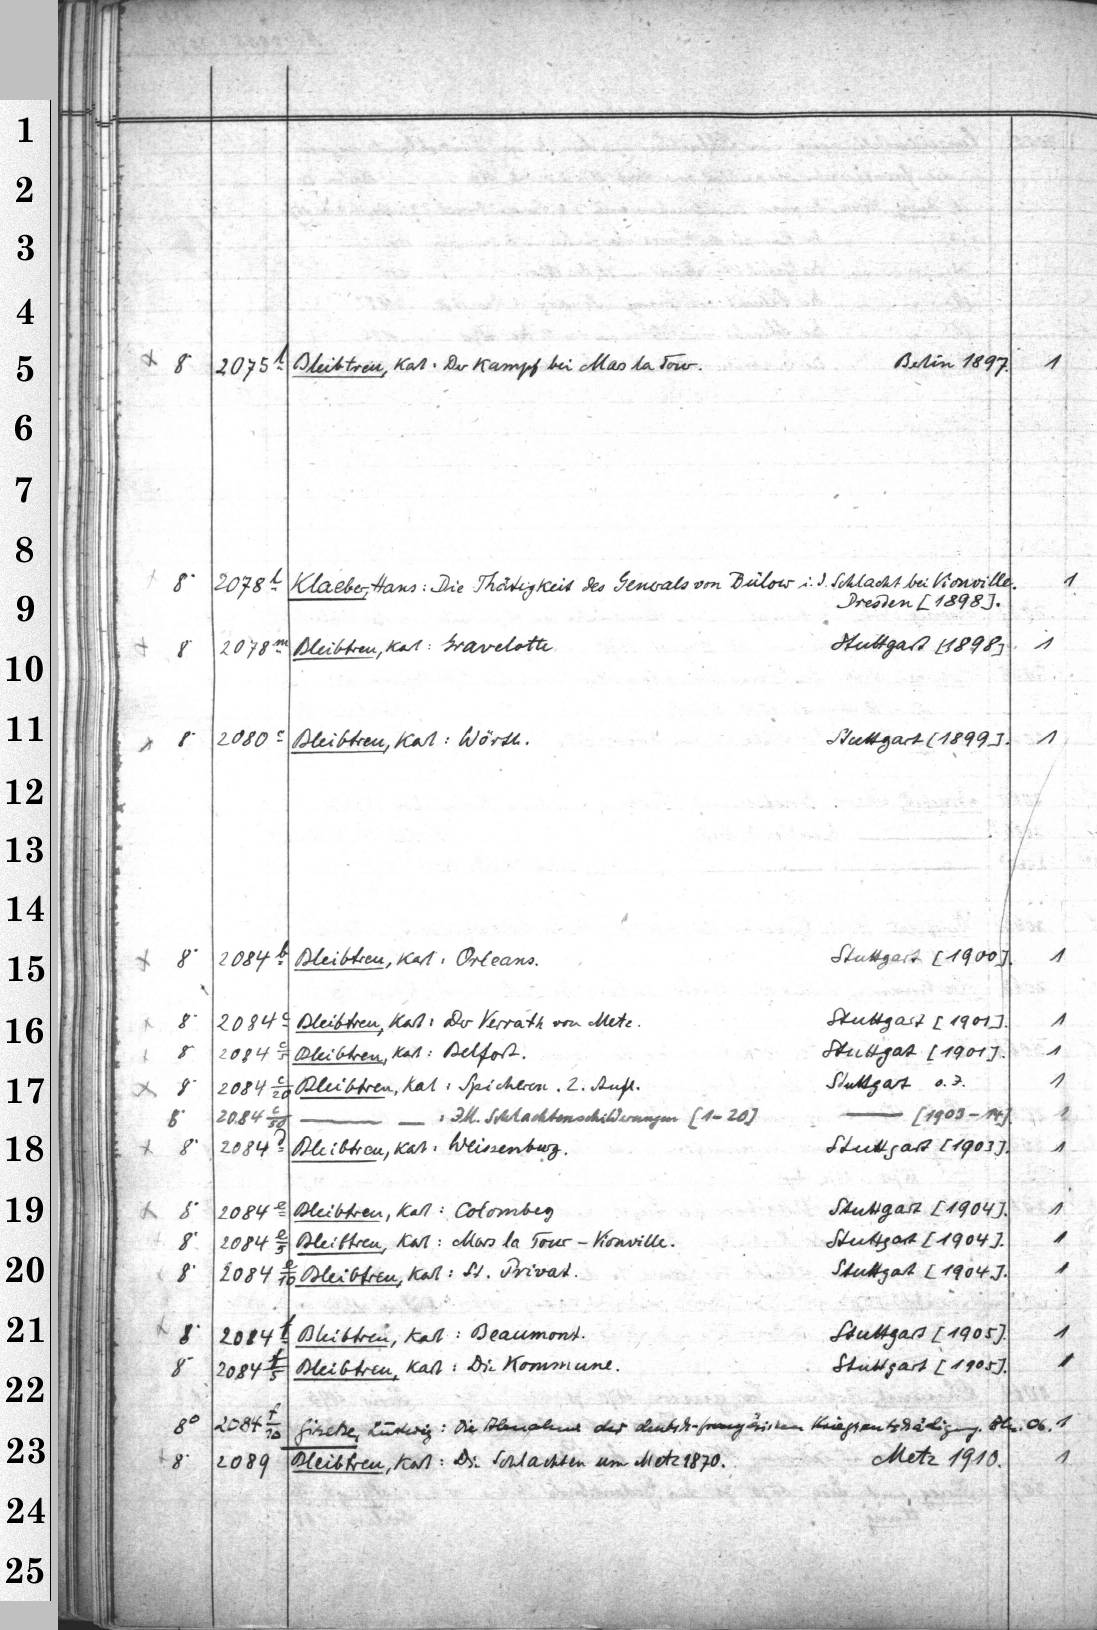 1
2
3
4
5
6
7
8
9
10
11
12
13
14
15
16
17
18
19
20
21
22
23
24
25
× 8° 2075 l Bleibtreu, Karl: Der Kampf bei Mars la Tour. Berlin 1897. 1
8° 2078 l Klaeber, Hans: Die Thätigkeit des Generals von Bülow i. d. Schlacht bei Vionville. 1
Dresden [1898].
8° 2078 m Bleibtreu, Karl: Gravelotte Stuttgart [1898] 1
× 8° 2080 c Bleibtreu, Karl: Wörth. Stuttgart [1899]. 1
× 8° 2084 b Bleibtreu, Karl: Orleans. Stuttgart [1900]. 1
× 8° 2084 c Bleibtreu, Karl: Der Verrath von Metz. Stuttgart [1901]. 1
8° 2084 c/5 Bleibtreu, Karl: Belfort. Stuttgart [1901]. 1
× 8° 2084 c/20 Bleibtreu, Karl: Spicheren. 2. Aufl. Stuttgart o. J. 1
8° 2084 c/50 — — : Ill. Schlachtenschilderungen [1-20] — [1903-14]
× 8° 2084 d Bleibtreu, Karl: Weissenburg. Stuttgart [1903]. 1
× 8° 2084 e Bleibtreu, Karl: Colombey Stuttgart [1904]. 1
8° 2084 e/5 Bleibtreu, Karl: Mars la Tour - Vionville. Stuttgart [1904]. 1
8° 2084 e/10 Bleibtreu, Karl: St. Privat. Stuttgart [1904]. 1
8° 2084 f Bleibtreu, Karl: Beaumont. Stuttgart [1905]. 1
8° 2084 f/5 Bleibtreu, Karl: Die Kommune. Stuttgart [1905]. 1
8° 2084 f/10 Gieseke, Ludwig: Die Abnahme der deutsch-französischen Kriegsentschädigung. Bln. 06. 1
8° 2089 Bleibtreu, Karl: Die Schlachten um Metz 1870. Metz 1910. 1